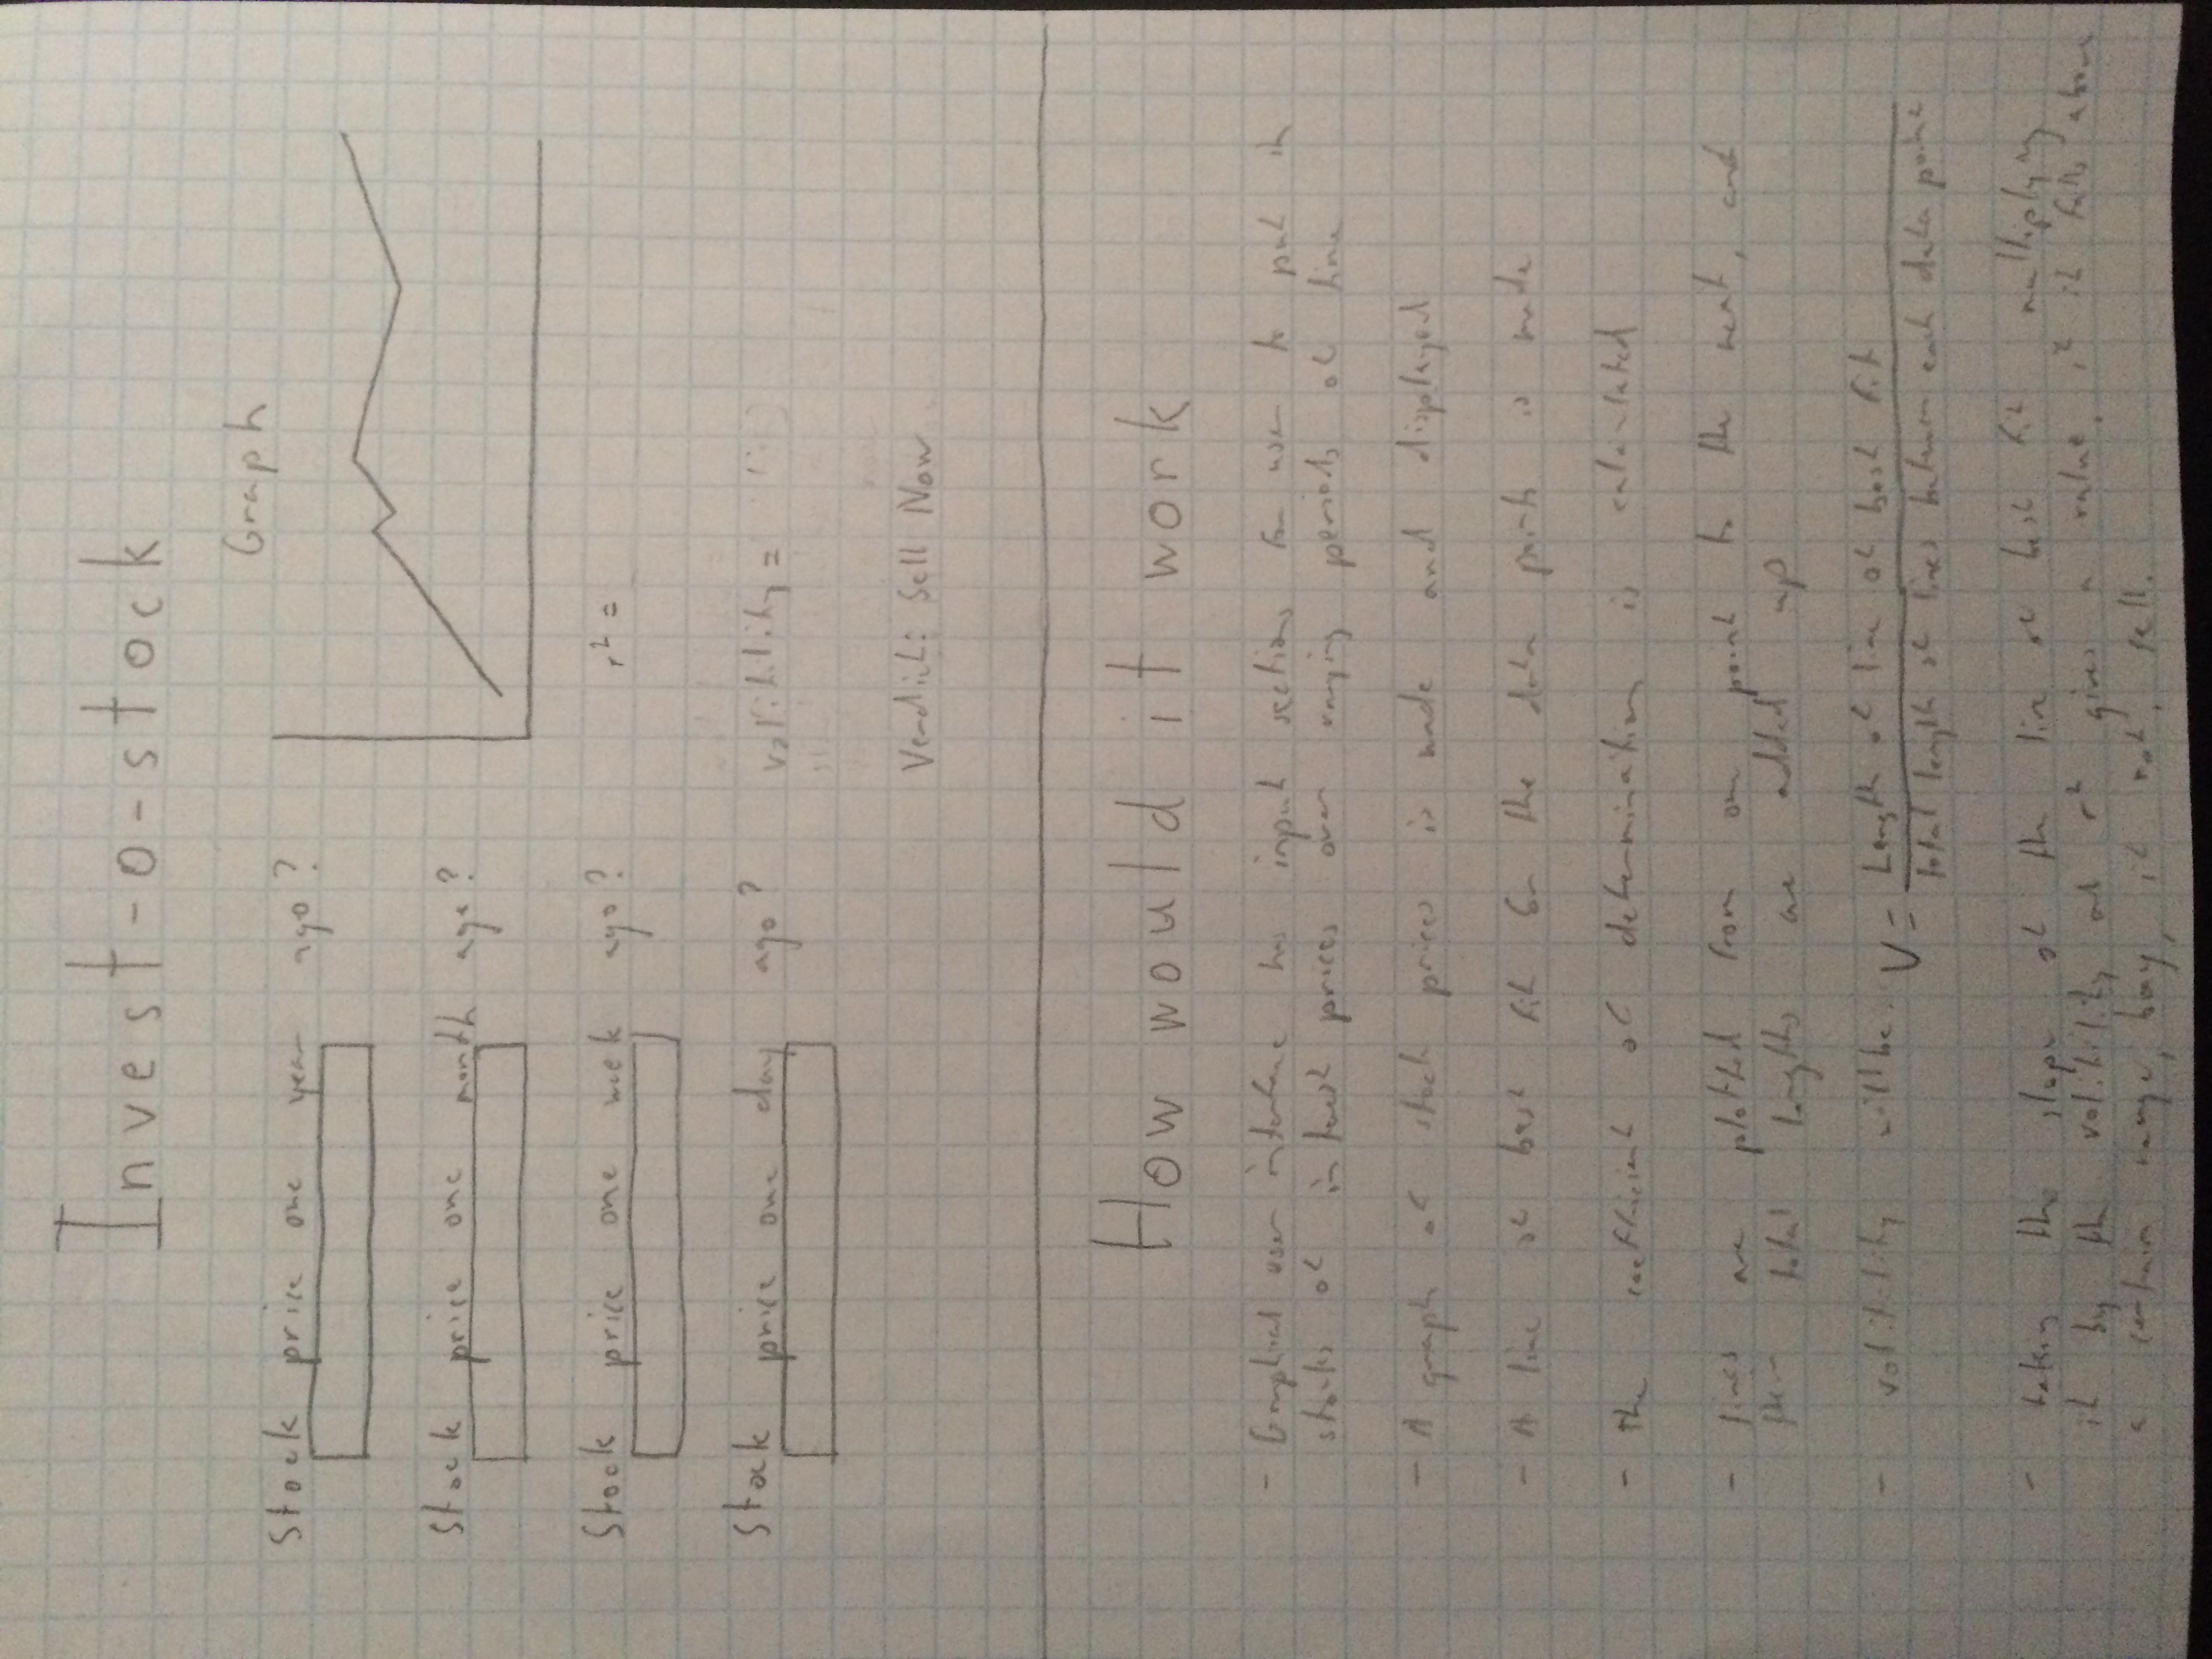 Invest-o-stock
Graph
Stock price one year ago?
Stock price one month ago?
Stock price one week ago?
r² =
Stock price one day ago?
volitility =
Verdict: Sell Now
How would it work
- Graphical user interface has input sections for user to put in
stocks of interest prices over varying periods of time
- A graph of stock prices is made and displayed
- A line of best fit for the data points is made
- the coefficient of determination is calculated
- lines are plotted from one point to the next, and
their total lengths are added up
- volitility will be: V = Length of line of best fit
total length of lines between each data point
- taking the slope of the line of best fit multiplying
it by the volitility and r² gives a value. if it falls above
a certain range, buy, if not, sell.